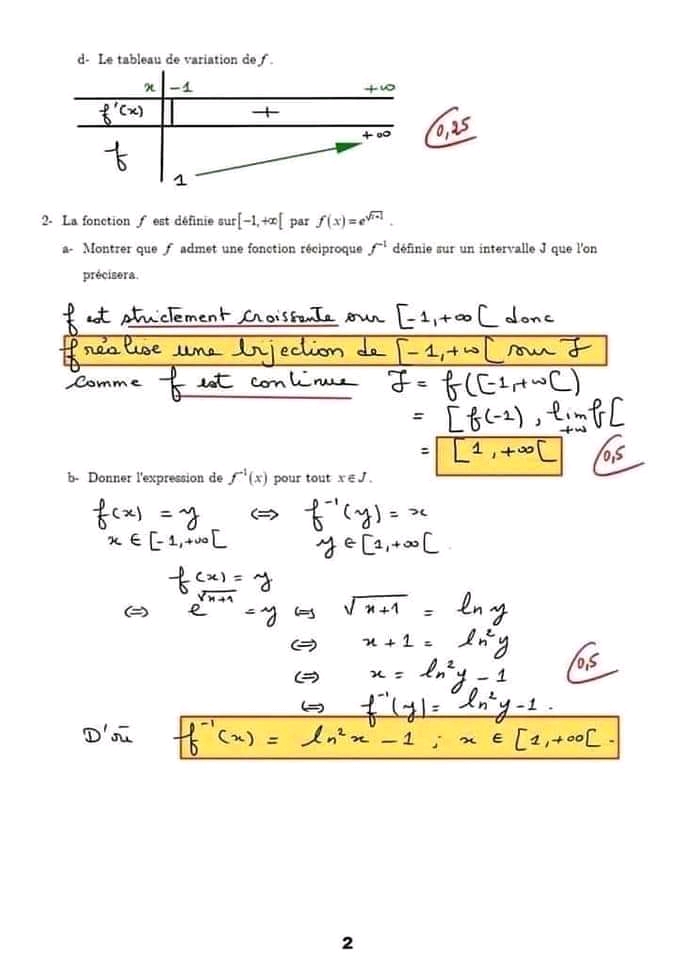 d- Le tableau de variation de f.
x -1 +∞
f'(x) +
f 1 +∞
0,25
2- La fonction f est définie sur [-1,+∞[ par f(x)=e^√(x+1) .
a- Montrer que f admet une fonction réciproque f⁻¹ définie sur un intervalle J que l'on
précisera.
f est strictement croissante sur [-1,+∞[ donc
f réalise une bijection de [-1,+∞[ sur J
comme f est continue J = f([-1,+∞[)
= [f(-1), lim f[
+∞
= [1,+∞[
0,5
b- Donner l'expression de f⁻¹(x) pour tout x∈J.
f(x) = y ⇔ f⁻¹(y) = x
x ∈ [-1,+∞[ y ∈ [1,+∞[.
f(x) = y
⇔ e^√(x+1) = y ⇔ √(x+1) = ln y
⇔ x+1 = ln²y
⇔ x = ln²y - 1
0,5
⇔ f⁻¹(y) = ln²y - 1.
D'où f⁻¹(x) = ln²x - 1 ; x ∈ [1,+∞[.
2